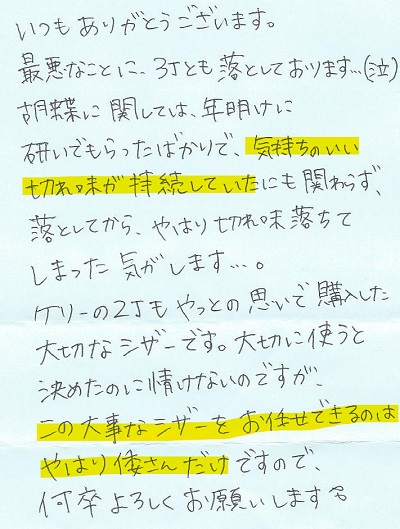 いつもありがとうございます。
最悪なことに、3丁とも落としております…(泣)
胡蝶に関しては、年明けに
研いでもらったばかりで、気持ちのいい
切れ味が持続していたにも関わらず、
落としてから、やはり切れ味落ちて
しまった気がします…。
ケリーの2丁もやっとの思いで購入した
大切なシザーです。大切に使うと
決めたのに情けないのですが、
この大事なシザーをお任せできるのは
やはり倭さんだけですので、
何卒よろしくお願いします